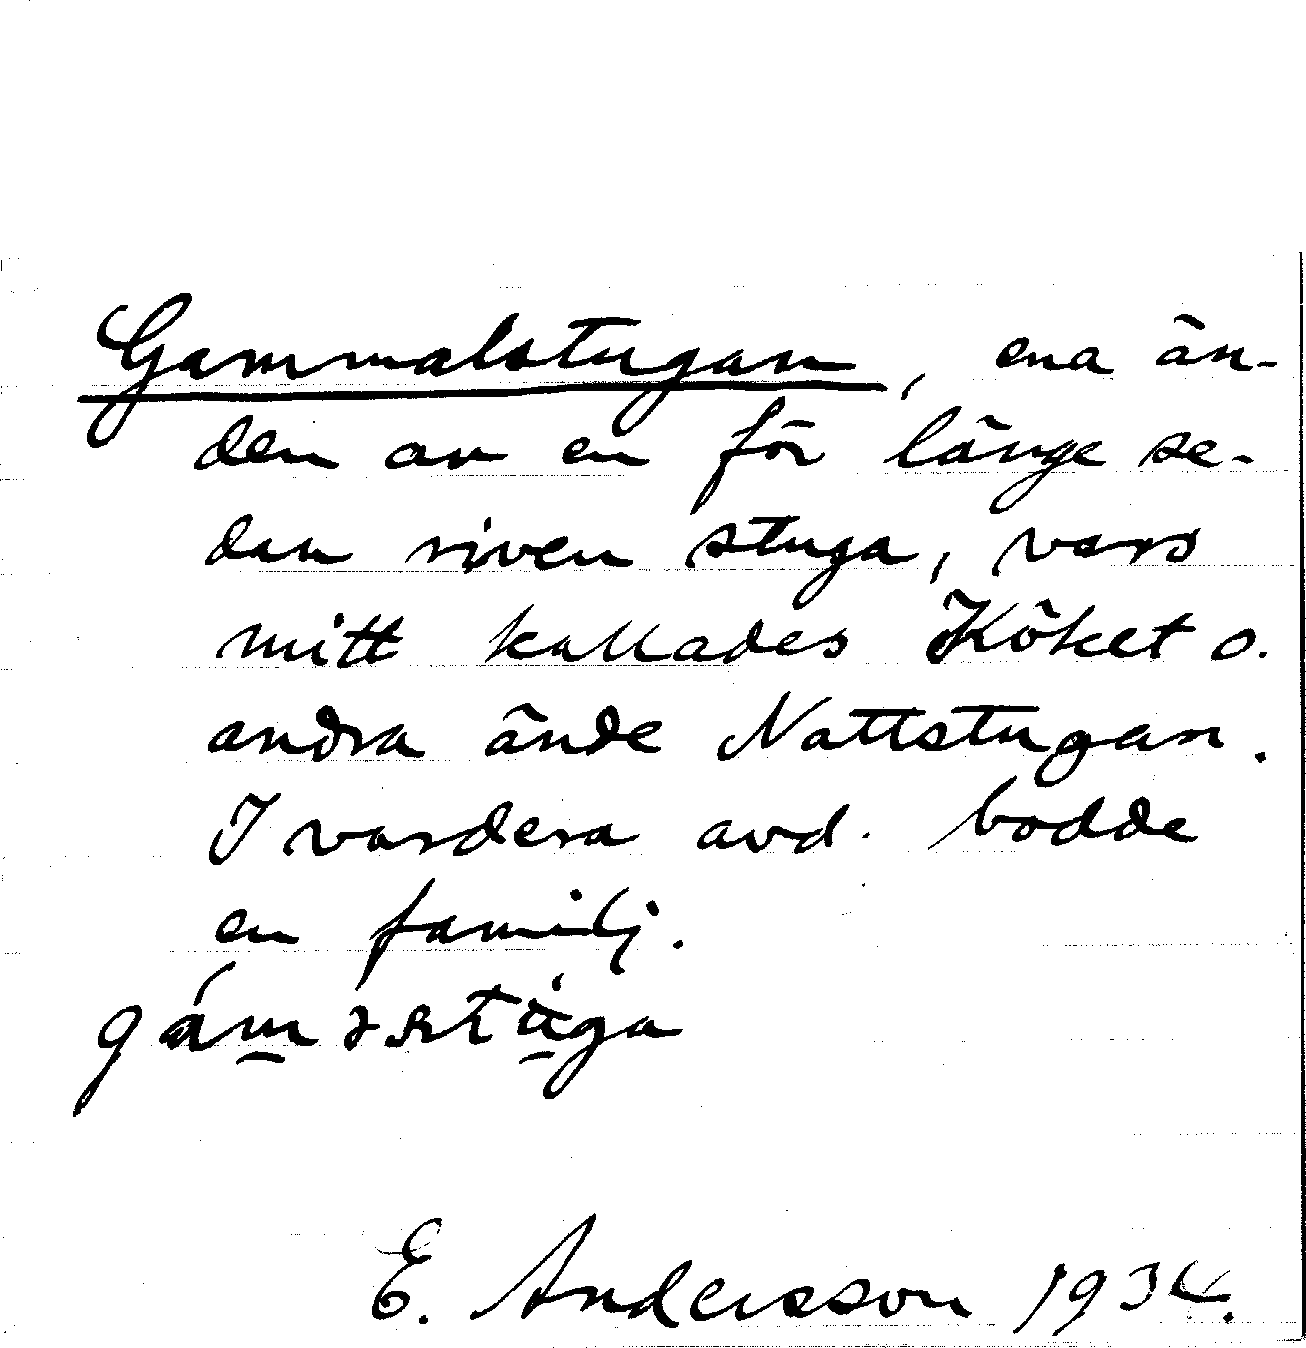 Gammalstugan, ena än-
den av en för länge se-
dan riven stuga, vars
mitt kallades Köket o.
andra ände Nattstugan.
I vardera avd. bodde
en familj.
E. Andersson 1934.